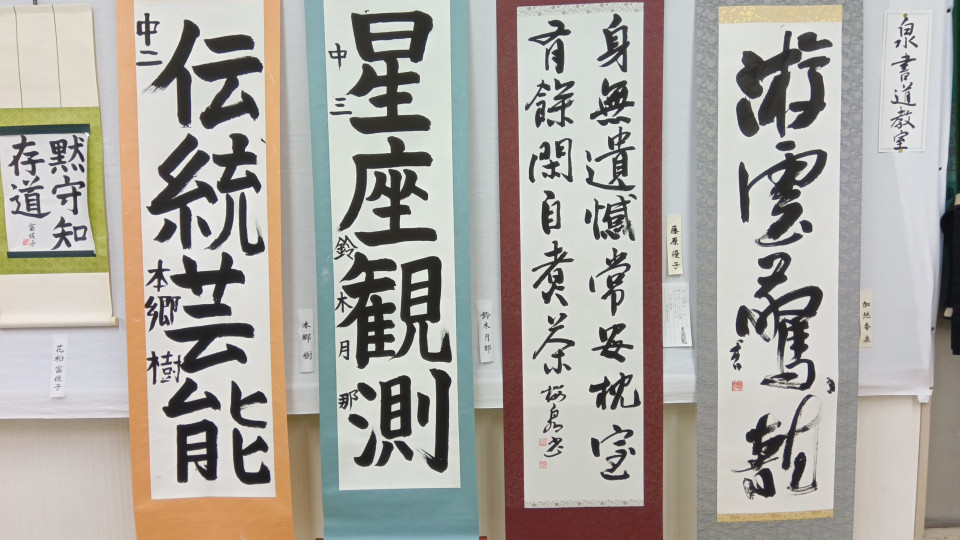 泉書道教室
游雲驚龍
藤原優子
身無遺憾常安枕室
有餘閑自煮茶
鈴木月那
星座観測
中三
鈴木月那
本郷樹
伝統芸能
中二
本郷樹
黙守知
存道
富佐子